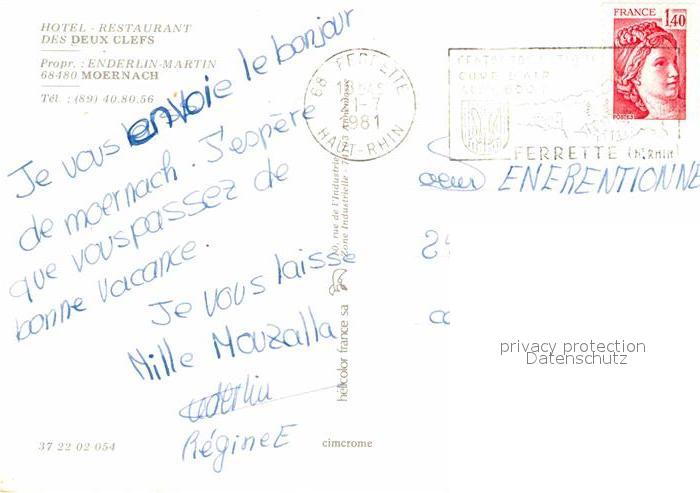 HOTEL - RESTAURANT
DES DEUX CLEFS
Propr. : ENDERLIN-MARTIN
68480 MOERNACH
Tél. : (89) 40.80.56
Je vous envoie le bonjour
de moernach. J'espère
que vous passez de
bonne vacance.
Je vous laisse
Mille Mouzalla
RégineE
37 22 02 054
cimcrome
hélicolor france sa
rue de l'Industrie
Zone Industrielle
68 FERRETTE
18H
1-7
1981
HAUT-RHIN
FERRETTE (Ht RHIN)
FRANCE
1,40
POSTES
soeur ENERENTIONNE
privacy protection
Datenschutz